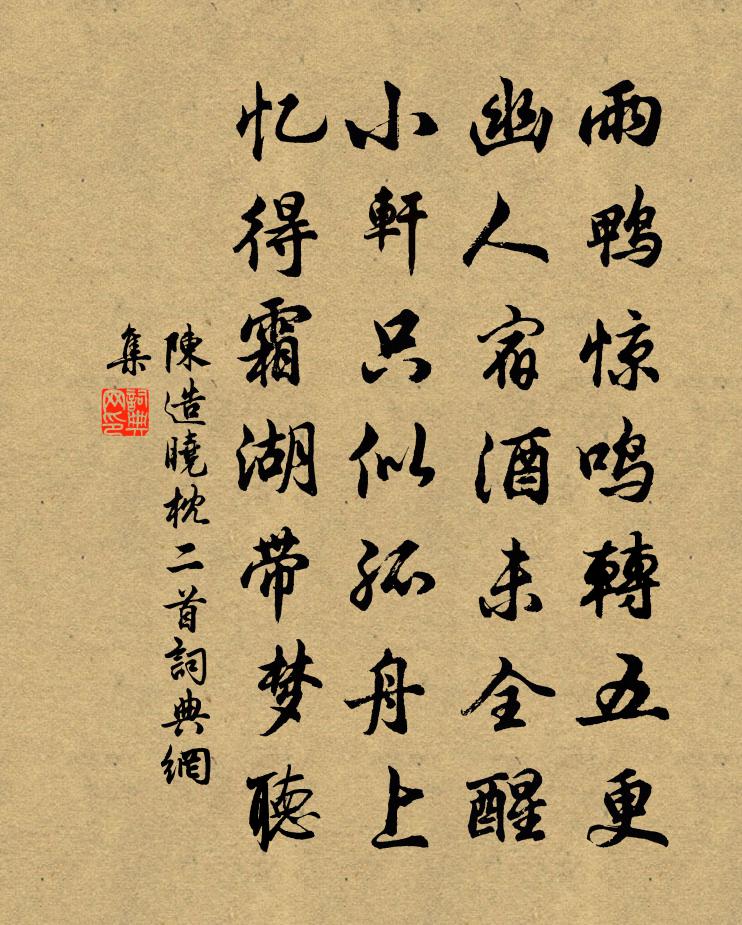 雨鸭惊鸣轉五更
幽人宿酒未全醒
小軒只似孤舟上
忆得霜湖带梦聽
陳造曉枕二首詞典網
集
詞典
网印